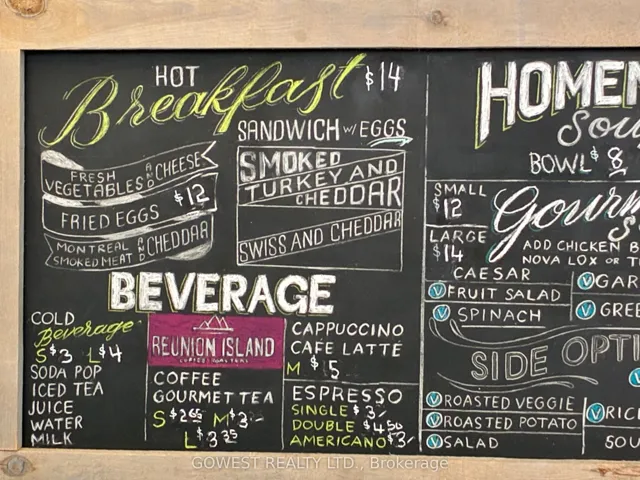 HOT
Breakfast $14
SANDWICH w/ EGGS
FRESH VEGETABLES AND CHEESE
$12
FRIED EGGS
MONTREAL SMOKED MEAT AND CHEDDAR
SMOKED
TURKEY AND
CHEDDAR
SWISS AND CHEDDAR
BEVERAGE
COLD
Beverage
S $3 L $4
SODA POP
ICED TEA
JUICE
WATER
MILK
REUNION ISLAND
COFFEE
GOURMET TEA
S $2.65 M $3-
L $3.35
CAPPUCCINO
CAFE LATTE
M $5
ESPRESSO
SINGLE $3-
DOUBLE $4.50
AMERICANO $3-
HOMEM
Sou
BOWL $8
SMALL
$12
LARGE
$14
Gourm
S
ADD CHICKEN B
NOVA LOX OR T
CAESAR
V FRUIT SALAD
V SPINACH
V GAR
V GREE
SIDE OPTI
V
V ROASTED VEGGIE
V ROASTED POTATO
V SALAD
V RIC
SOU
GOWEST REALTY LTD., Brokerage